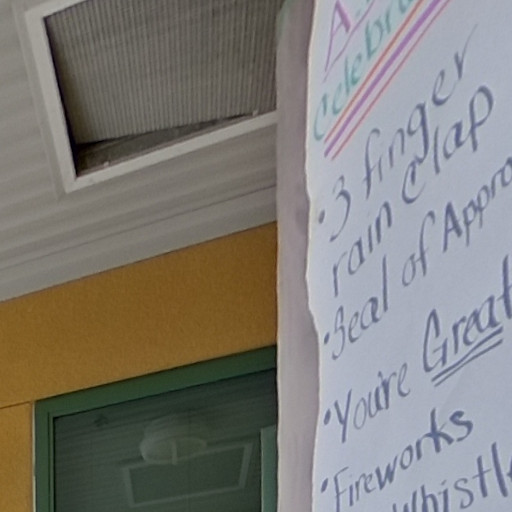 Celebra
• 3 finger
rain Clap
• Seal of Appro
• You're Great
• Fireworks
Whistl